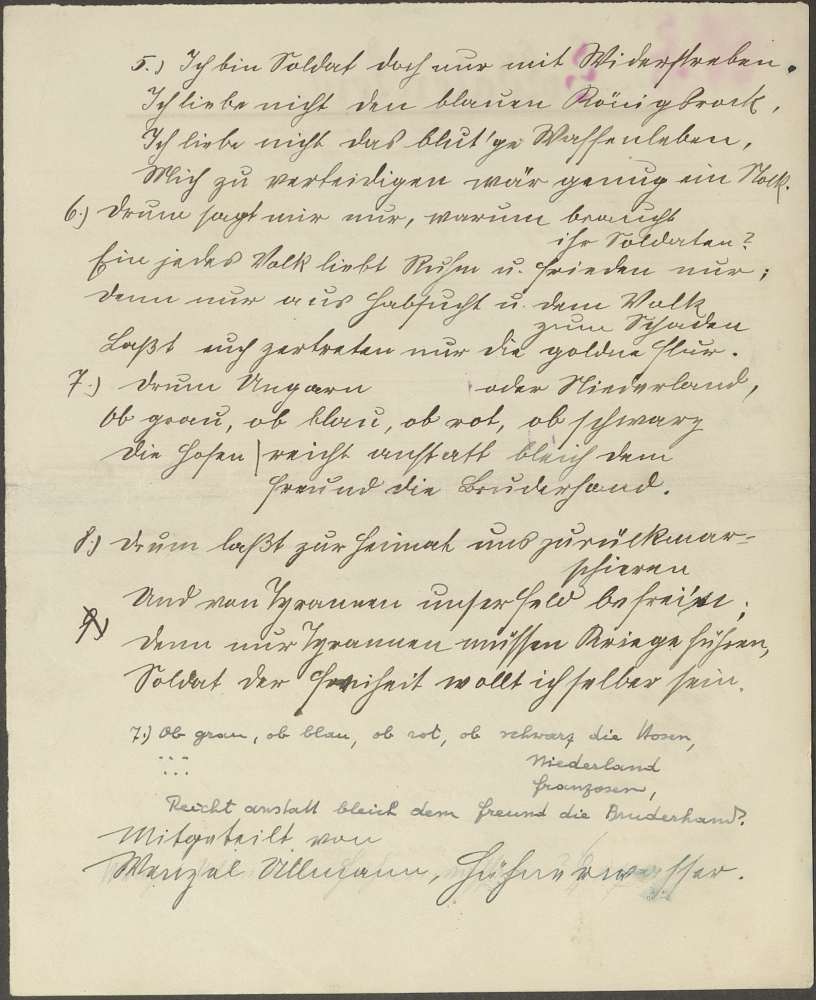 5.) Ich bin Soldat doch nur mit Widerstreben.
Ich liebe nicht den blauen Königsrock,
Ich liebe nicht das blut'ge Waffenleben,
Mich zu verteidigen wär genug ein Stock.
6.) Drum sagt mir nur, warum braucht
ihr Soldaten?
Ein jedes Volk liebt Ruhm u. Frieden nur;
Denn nur aus Habsucht u. dem Volk
zum Schaden
Laßt euch zertreten nur die goldne Flur.
7.) Drum Ungarn oder Niederland,
Ob grau, ob blau, ob rot, ob schwarz
die Hosen | reicht anstatt bleich dem
Freund die Bruderhand.
8.) Drum laßt zur Heimat uns zurückmar-
schieren
Und von Tyrannen unser Feld befrei'n;
9.) Denn nur Tyrannen müssen Kriege führen,
Soldat der Freiheit wollt ich selber sein.
7.) Ob grau, ob blau, ob rot, ob schwarz die Hosen,
Niederland
Franzosen,
Reicht anstatt bleich dem Freund die Bruderhand?
Mitgeteilt von
Wenzel Ullmann, Hühnerwasser.